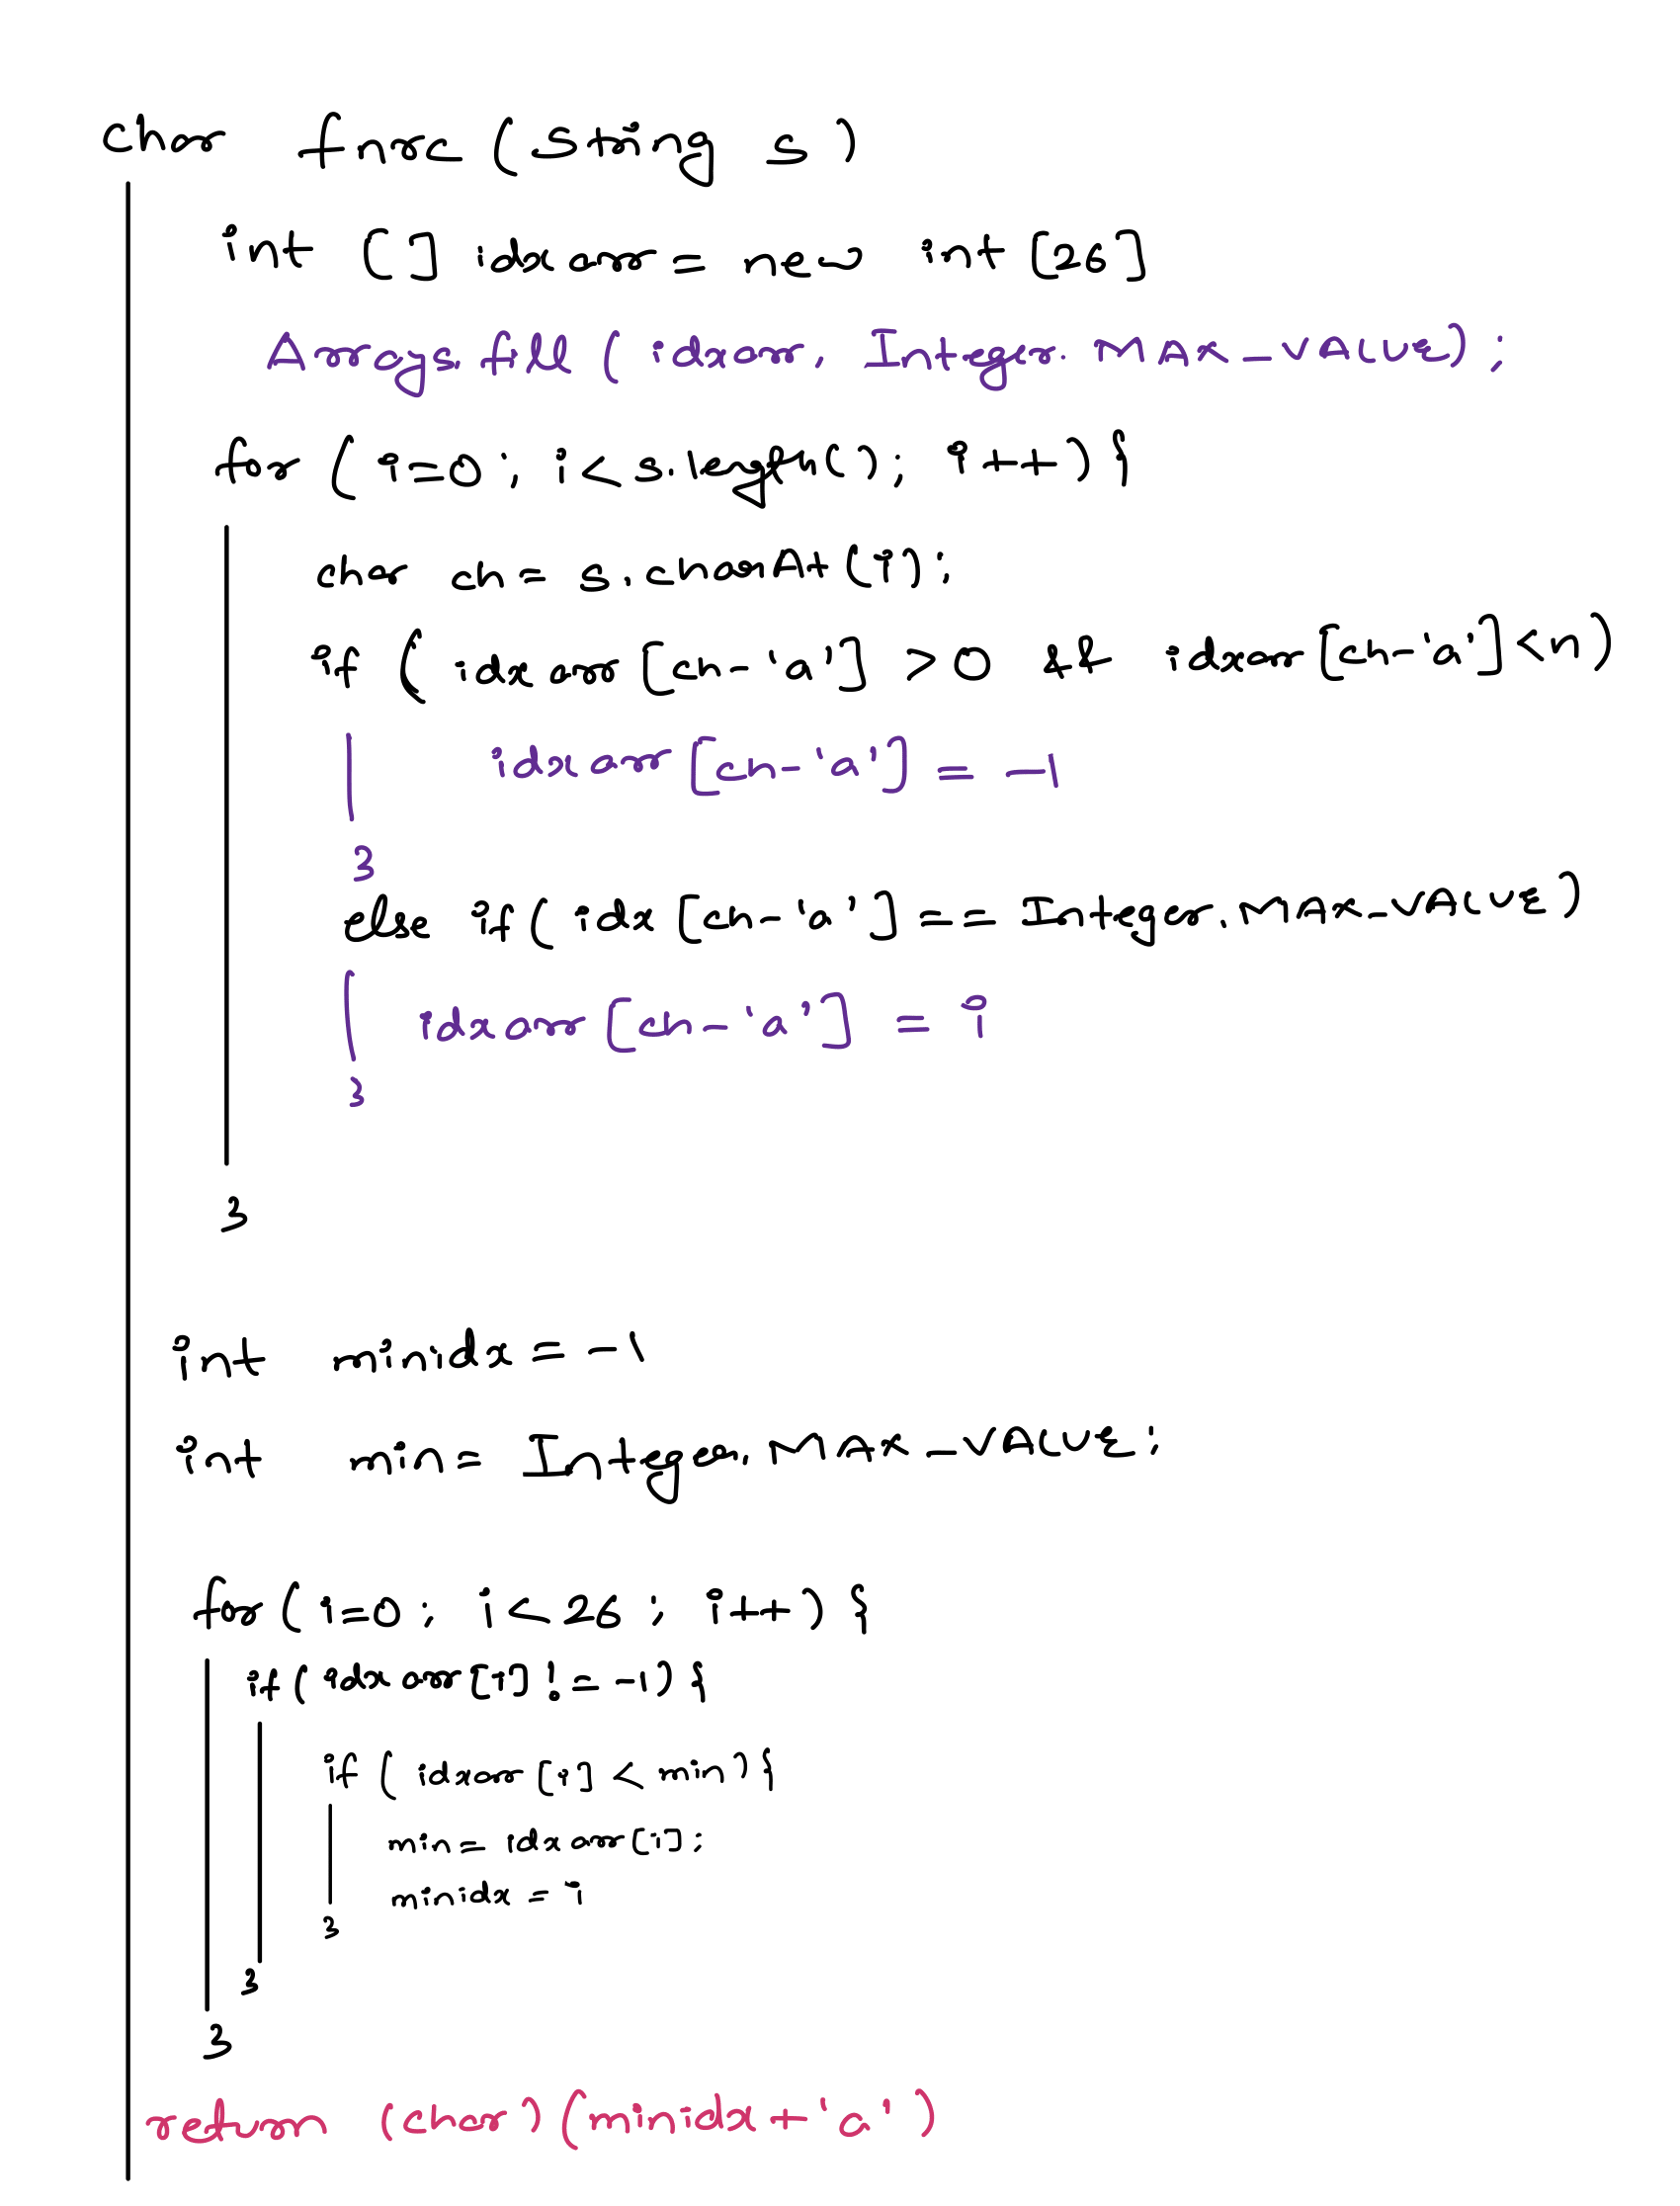 char fnrc (String s)
int [] idxarr = new int [26]
Arrays.fill ( idxarr, Integer. MAX_VALUE) ;
for ( i=0 ; i < s.length() ; i++ ) {
char ch = s.charAt (i) ;
if ( idxarr [ch-'a'] > 0 && idxarr [ch-'a'] < n )
idxarr [ch-'a'] = -1
}
else if ( idx [ch-'a'] == Integer. MAX_VALUE )
idxarr [ch-'a'] = i
}
}
int minidx = -1
int min = Integer. MAX_VALUE ;
for ( i=0 ; i < 26 ; i++ ) {
if ( idxarr [i] != -1 ) {
if ( idxarr [i] < min ) {
min = idxarr [i] ;
minidx = i
}
}
}
return (char) (minidx + 'a')